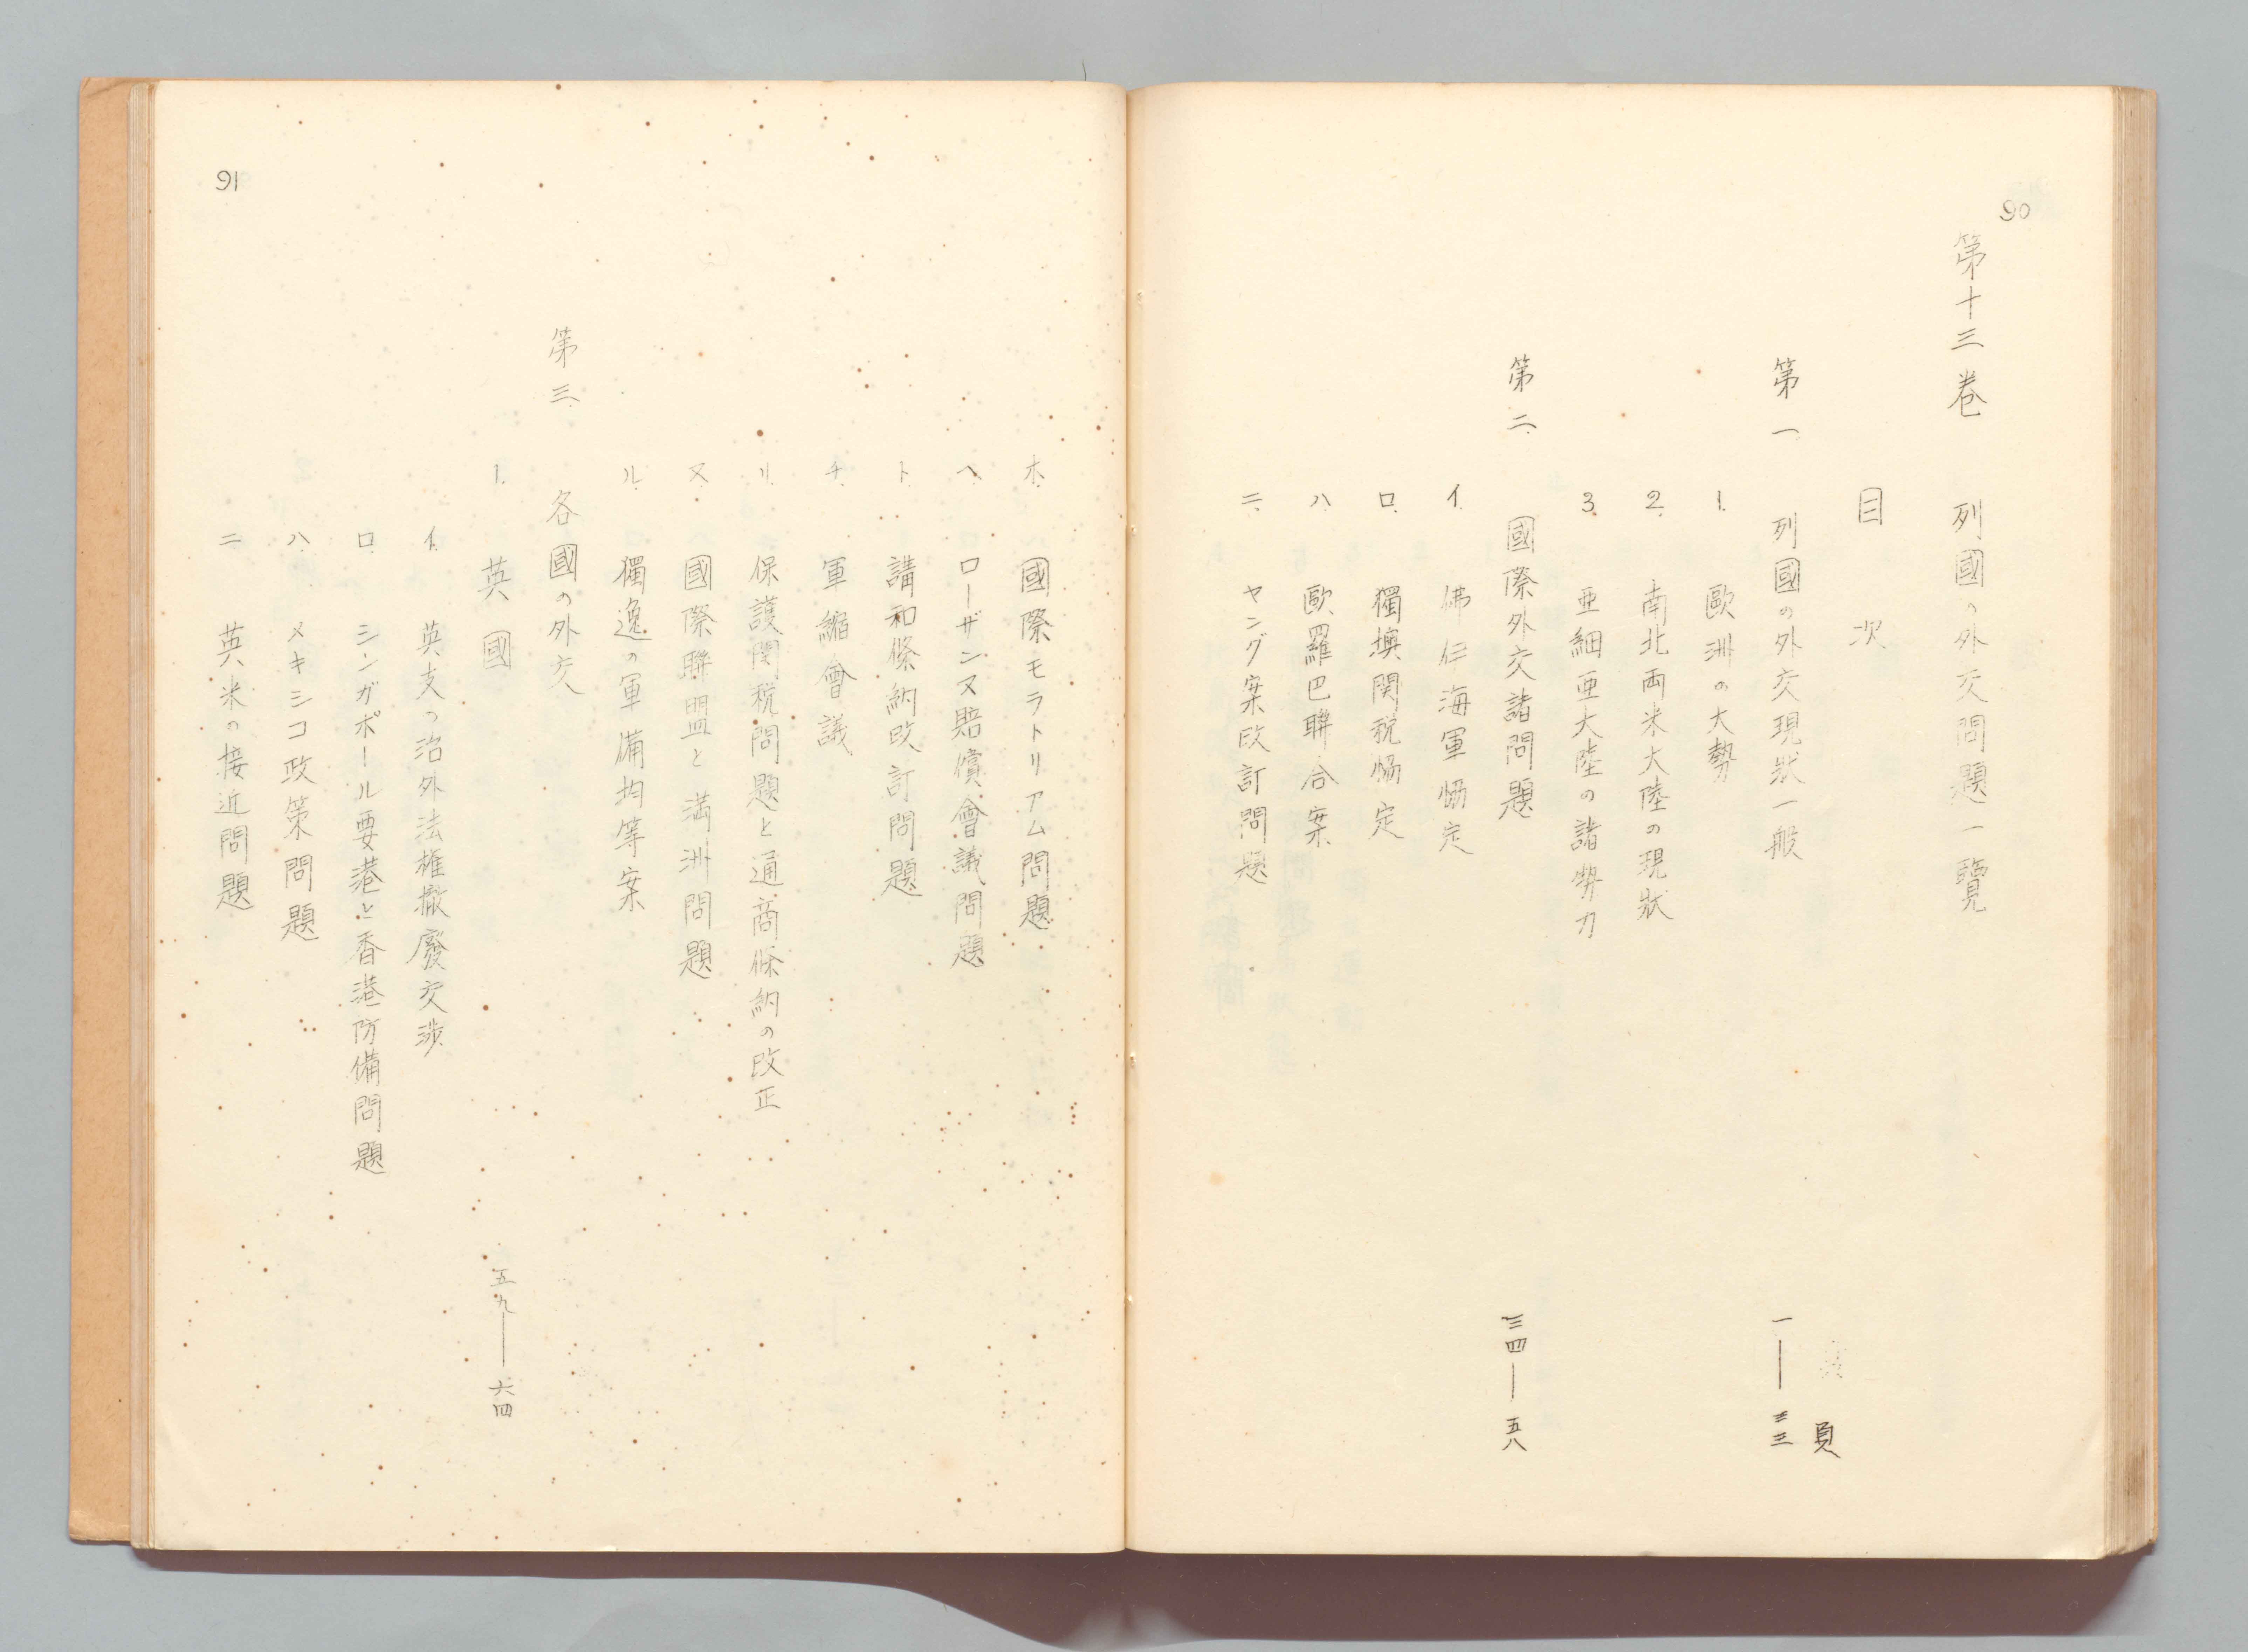 90
第十三卷　列國の外交問題一覽
目次
頁
第一　列國の外交現狀一般　一―三三
1.　歐洲の大勢
2.　南北両米大陸の現狀
3.　亜細亜大陸の諸勢力
第二　國際外交諸問題　三四―五八
イ.　佛伊海軍協定
ロ.　獨墺関税協定
ハ.　歐羅巴聯合案
ニ.　ヤング案改訂問題
91
ホ.　國際モラトリアム問題
ヘ.　ローザンヌ賠償會議問題
ト.　講和條約改訂問題
チ.　軍縮會議
リ.　保護関税問題と通商條約の改正
ヌ.　國際聯盟と満洲問題
ル.　獨逸の軍備均等案
第三　各國の外交
1.　英國　五九―六四
イ.　英支の治外法権撤廢交渉
ロ.　シンガポール要港と香港防備問題
ハ.　メキシコ政策問題
ニ　英米の接近問題